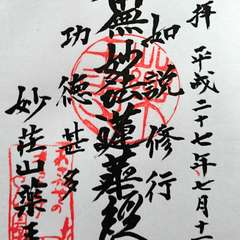 拝 平成二十七年七月十
如説修行
無妙法蓮華経
功徳甚多
妙荘山薬王